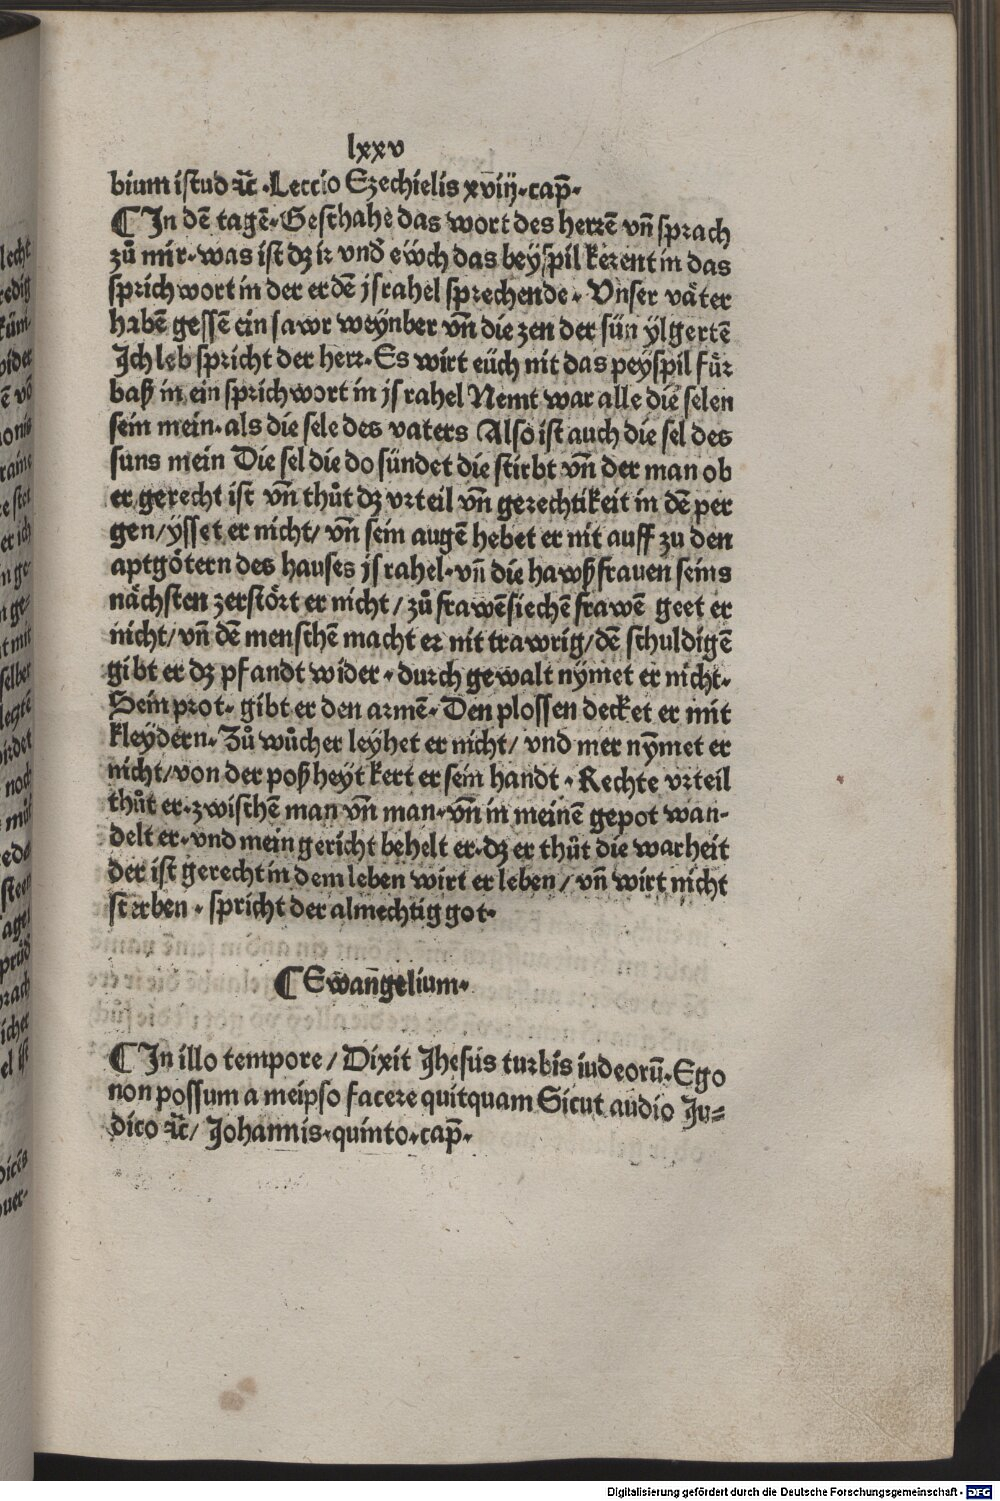 lxxv
bium istud ⁊c̄ · Leccio Ezechielis xviij · cap̄ ·
¶ In dē tagē · Geschahe das wort des herrē vn̄ sprach
zů mir · was ist dz ir vnd eẅch das beyspil kerent in das
sprichwort in der erdē jsrahel sprechende · Vnser väter
habē gessē ein sawr weynber vn̄ die zen der sün ylgertē
Ich leb spricht der herr · Es wirt eüch nit das peyspil für
baß in ein sprichwort in jsrahel Nemt war alle die selen
sein mein · als die sele des vaters Also ist auch die sel des
suns mein Die sel die do sündet die stirbt vn̄ der man ob
er gerecht ist vn̄ thůt dz vrteil vn̄ gerechtikeit in dē per
gen / ysset er nicht / vn̄ sein augē hebet er nit auff zu den
aptgötern des hauses jsrahel · vn̄ die hawßfrauen seins
nächsten zerstört er nicht / zů frawēsiechē frawē geet er
nicht / vn̄ dē menschē macht er nit trawrig / dē schuldigē
gibt er dz pfandt wider · durch gewalt nymet er nicht ·
Sein prot · gibt er den armē · Den plossen decket er mit
kleydern · Zů wůcher leyhet er nicht / vnd mer nȳmet er
nicht / von der poßheyt kert er sein handt · Rechte vrteil
thůt er · zwischē man vn̄ man · vn̄ in meinē gepot wan-
delt er · vnd mein gericht behelt er · dz er thůt die warheit
der ist gerecht in dem leben wirt er leben / vn̄ wirt nicht
sterben · spricht der almechtig got ·
¶ Ewan̄gelium ·
¶ In illo tempore / Dixit Jhesus turbis iudeorū · Ego
non possum a meipso facere quitquam Sicut audio Ju⸗
dico ⁊c̄ / Johannis · quinto · cap̄ ·
Digitalisierung gefördert durch die Deutsche Forschungsgemeinschaft - DFG